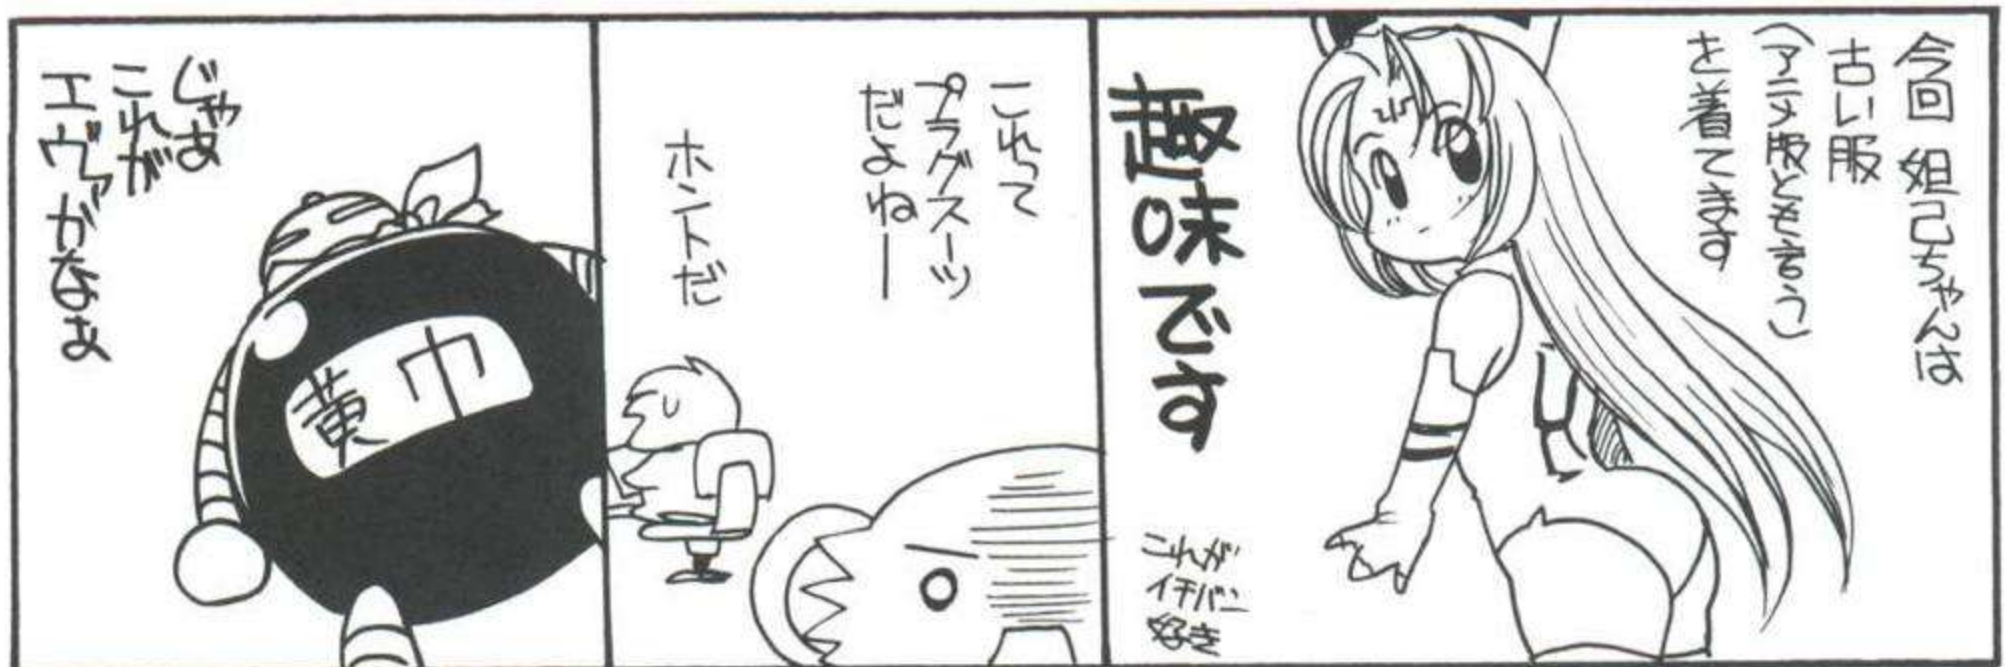 今回 妲己ちゃんは
古い服
(アニメ版とも言う)
を着てます
趣味です
これが
イチバン
好き
これって
プラグスーツ
だよねー
ホントだ
じゃあ
これが
エヴァかなぁ
黄巾